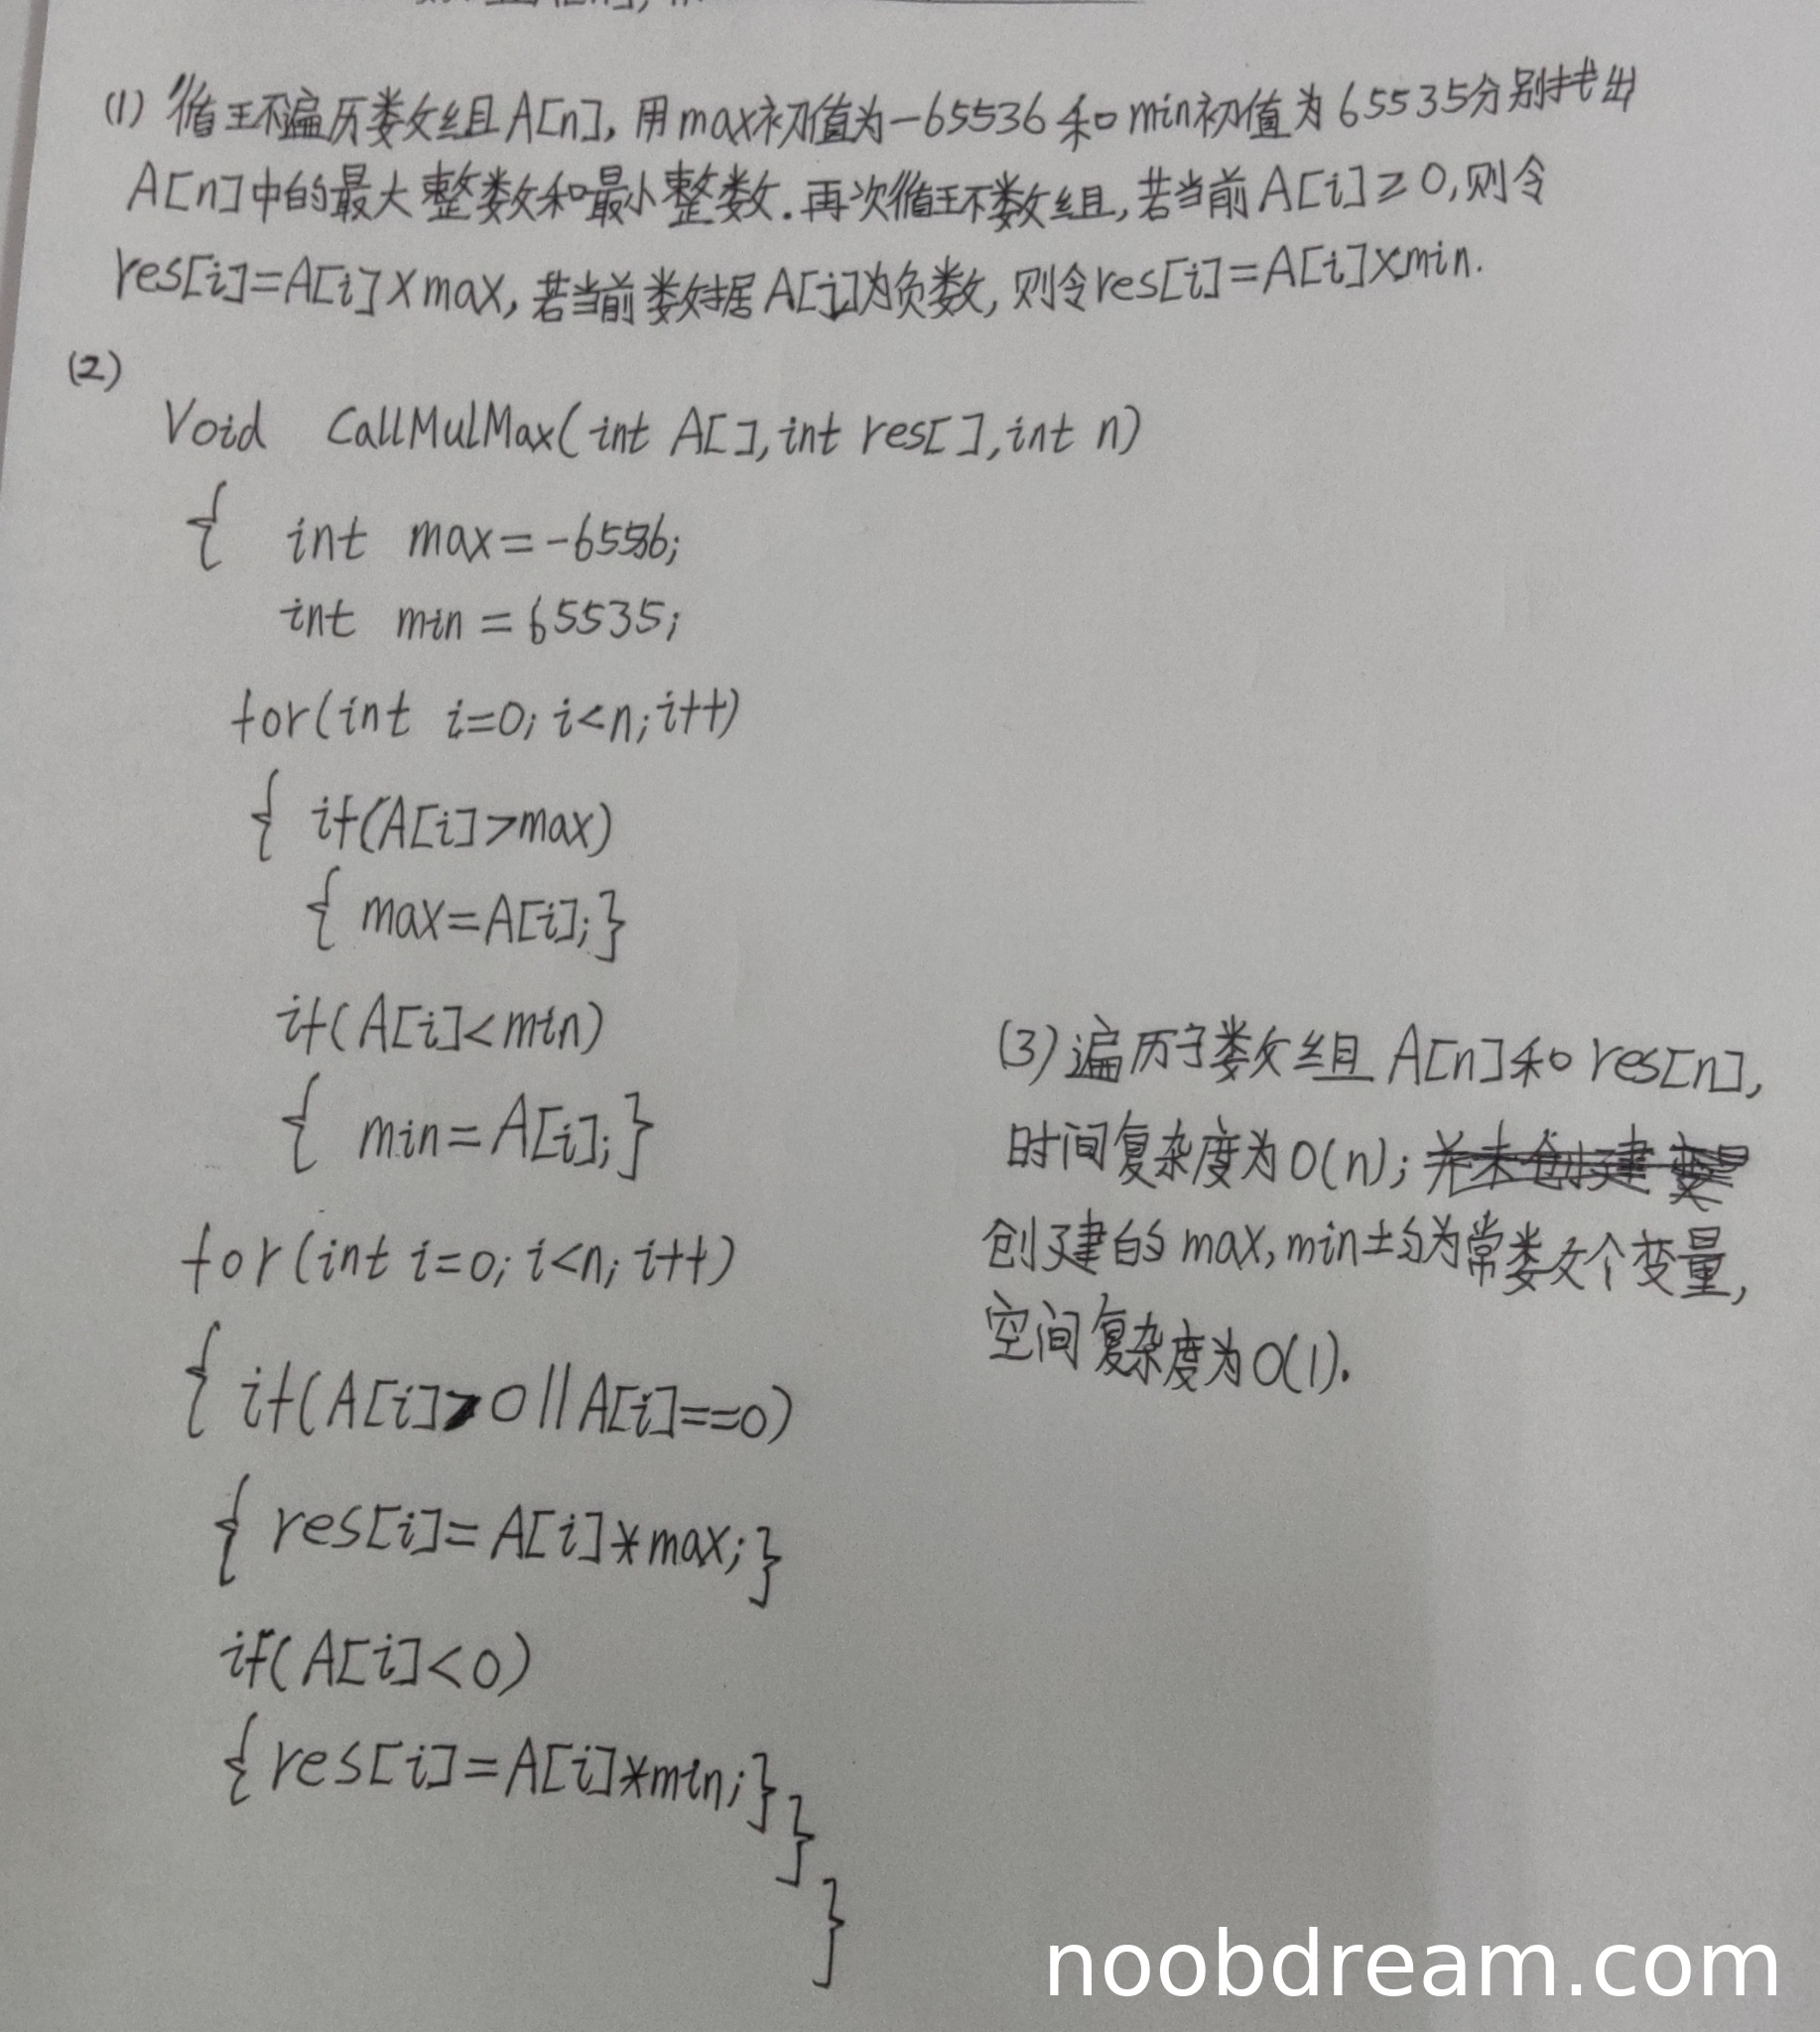 (1) 循环遍历数组A[n],用max初值为-65536和min初值为65535分别找出
A[n]中的最大整数和最小整数.再次循环数组,若当前A[i]≥0,则令
res[i]=A[i]×max,若当前数据A[i]为负数,则令res[i]=A[i]×min.
(2)
Void CallMulMax(int A[],int res[],int n)
{ int max=-65536;
int min=65535;
for(int i=0;i<n;i++)
{ if(A[i]>max)
{ max=A[i];}
if(A[i]<min)
{ min=A[i];}
for(int i=0;i<n;i++)
{ if(A[i]>0||A[i]==0)
{ res[i]=A[i]*max;}
if(A[i]<0)
{res[i]=A[i]*min;}
}
}
(3)遍历了数组A[n]和res[n],
时间复杂度为O(n);并未创建变量
创建的max,min均为常数个变量,
空间复杂度为O(1).
noobdream.com